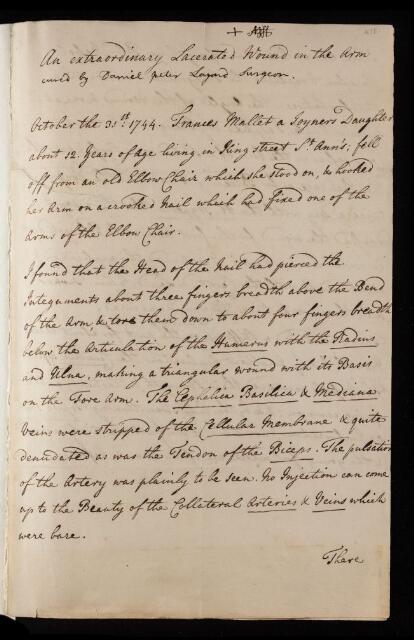 An extraordinary Lacerated Wound in the Arm
cured by Daniel Peter Layard Surgeon.
October the 31st. 1744. Frances Mallet a Joyners Daughter
about 12 Years of Age living in King street St Ann's, fell
off from an old Elbow Chair which she stood on, & hooked
her Arm on a crooked Nail which had fixed one of the
Arms of the Elbow Chair.
I found that the Head of the Nail had pierced the
Integuments about three fingers breadth above the Bend
of the Arm, & tore them down to about four fingers breadth
below the Articulation of the Humerus with the Radius
and Ulna, making a triangular wound with its Basis
on the Fore Arm. The Cephalica Basilica & Mediana
Veins were stripped of the Cellular Membrane & quite
denudated as was the Tendon of the Biceps. The pulsation
of the Artery was plainly to be seen. No Injection can come
up to the Beauty of the Collateral Arteries & Veins which
were bare.
There